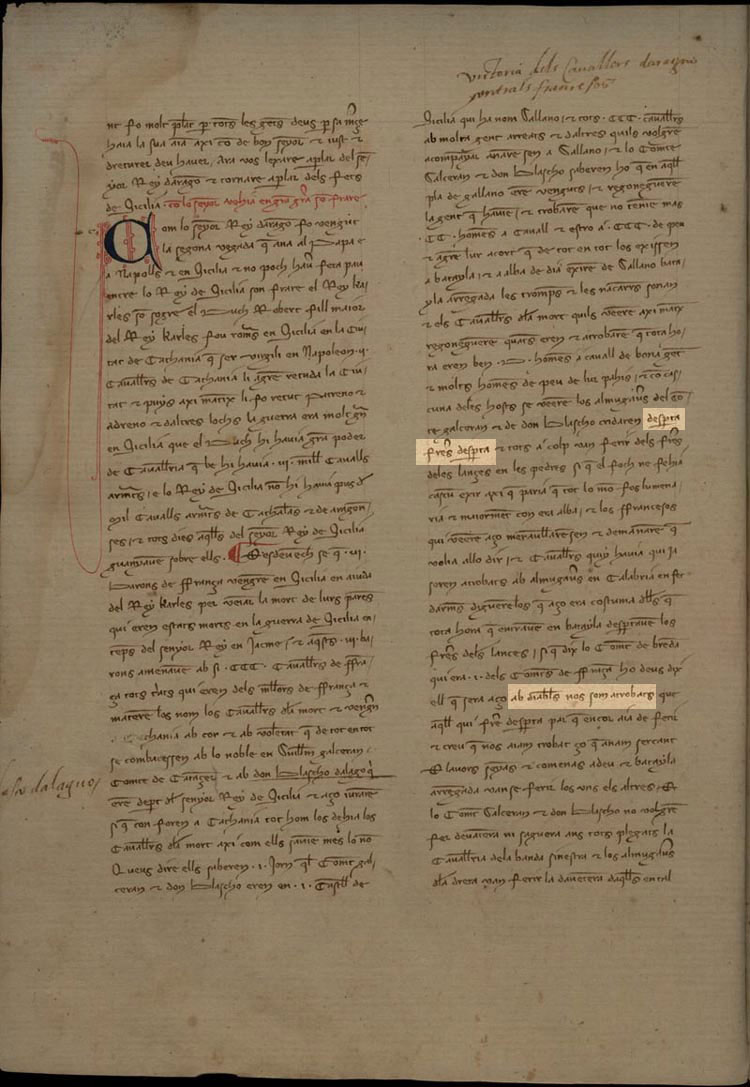 victoria dels Cavallers darago
contrals francesos
nt fo molt plãt p tots les gẽts deus p sa mẽge
haia la sua aīa axi cõ de bon seyor & iust &
dreturer deu haver, Ara vos lexare aplar del sẽ
yor Rey darago & tornare aplar dels fets
de Sicilia
Com lo seyor Rey darago fo vengut
la segona vegada q ana al Papa e
a Napolls & en Sicilia & no poch havẽ feta pau
entre lo Rey de Sicilia son frare el Rey Kar
les so sogre el Duch Robert fill maior
del Rey Karles fou romas en Sicilia en la Ciu
tat de Cathania q ser virgili en Napoleon ij
Cavallrs de Cathania li agrẽ retuda la Ciu
tat & puys axi matix li fo retut Paterno &
adreno & daltres lochs la guerra era molt grã
en Sicilia que el Duch hi havia grã poder
de Cavallria q be hi havia iij mill Cavalls
armats, e lo Rey de Sicilia no hi havia pus de
mil Cavalls armats de Cathalãs & de aragon
ses, & tots dies aqlls del seyor Rey de Sicilia
guanyaue sobre ells. Esdevech se q iij
Barons de ffrança vengre en Sicilia en aiuda
del Rey Karles per veniar la mort de lurs pares
qui eren estats morts en la guerra de Sicilia en
temps del senyor Rey en Jacme, & aqsts iij ba
rons amenave ab si CCC Cavallrs de ffrã
ça tots triats qui eren dels mllors de ffrança &
materẽ los nom los Cavallrs dla mort & vengrẽ
a Cathania ab cor & ab volentat q de tot en tot
se combatessen ab lo noble en Guillm galceran
Comte de Catãzer & ab don Blascho dalago q
ere de part dl senyor Rey de Sicilia & aço iurare
si q con foren a Cathania tot hom los dehia los
Cavallrs dla mort axi com ells savie mes lo nõ
Queus dire ells saberen .i. Jorn ql Comte gal
ceran & don Blascho eren en .i. Castell de
blasco dalaguo
Sicilia qui ha nom Gallano, & tots CCC cavallrs
ab molta gent arreats & daltres quils volgrẽ
acompayar anare sen a Gallano, & lo Comte
Galceran & don Blascho saberem ho q en aqll
pla de gallano ere venguts, & regonegueren
la gent q havie, & trobare que no tenie mas
CC homes a Cavall & estro a CCC de peu
& agrẽ lur acort q de tot en tot los exissen
a batayla, & a alba de dia exire de Gallano bata
yla arregada les tromps & les nacarrs sonan
& els Cavallrs dla mort quils veere axi matix
regonegueren quats eren & atrobare q tota ho
ra eren ben D homes a cavall de bona gẽt
& molts homes de peu de lur pahis, & cõ cas
cuna deles hosts se veere los almugavs del cõ
te galceran & de don Blascho cridaren despta
frẽs despta & tots a colp van ferir dels frẽs
deles lançes en les pedres si q el foch ne fehia
cascu exir axi q paria q tot lo mõ fos lumena
ria & maiormẽt con era alba, & los ffrancesos
qui veere aço meravallaresen & demanare q
volia allo dir, & Cavallrs quiy havia qui ja
seren atrobats ab almugavs en Calabria en fet
darmes diguerelos q aço era costuma dlls q
tota hora q entraven en batayla desptave los
frẽs dels lances, si q dix lo Comte de breda
qui era .i. dels Comtes de ffrança ho deus dix
ell q sera aço ab diabls nos som atrobats que
aqll qui frẽ despta par q en cor aia de ferir
& creu q nos aiam trobat ço q anam sercant
E lavors seyas & comenas a deu & batayla
arregada van se ferir los uns els altres, &
lo Comte Galceran & don Blascho no volgrẽ
fer devantera ni saguera ans tots plegats la
Cavallria dela banda sinestra & los almugavs
dla dreta van ferir la davãtera daqlls en tal